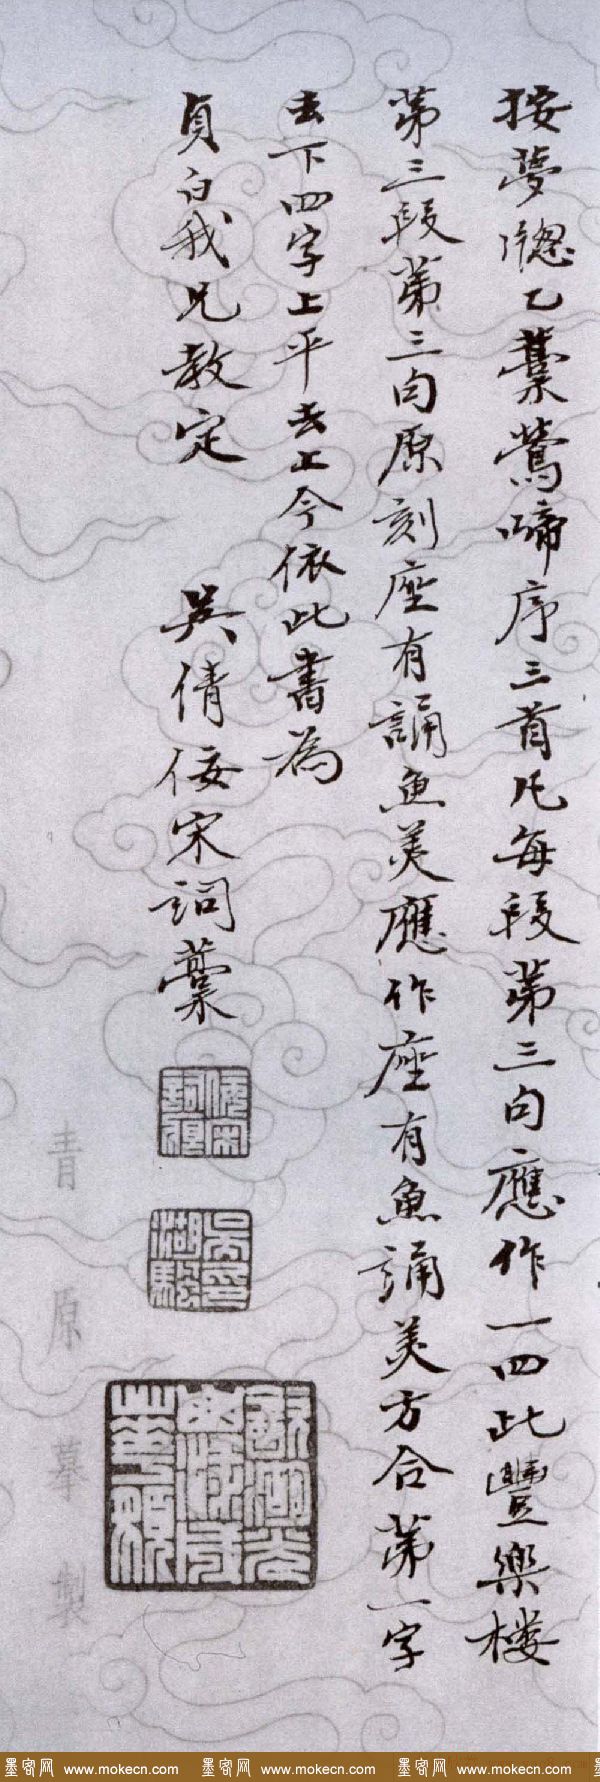 按夢窗乙藁鶯啼序三首凡每段第三句應作一四此豐樂樓
第三段第三句原刻座有誦魚美應作座有魚誦美方合第一字
去下四字上平去上今依此書為
貞白我兄教定 吳倩佞宋詞藁
佞宋詞痕
吳湖驇印
青原摹製
墨客网 www.mokecn.com 墨客网 www.mokecn.com 墨客网 www.mokecn.com